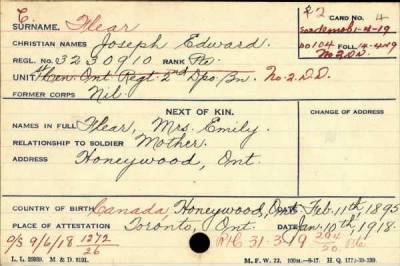 C
SURNAME. Flear # 2 CARD NO. 4
CHRISTIAN NAMES Joseph Edward. 1-4-19
REGL. NO. 3230910 RANK Pte. DO104 FOLL 14-4-19
UNIT 1st Cen. Ont Regt. 2nd Dpo. Bn. No. 2. D.D. No 2 D.D.
FORMER CORPS Nil
NEXT OF KIN. CHANGE OF ADDRESS
NAMES IN FULL Flear, Mrs. Emily.
RELATIONSHIP TO SOLDIER Mother.
ADDRESS Honeywood, Ont.
COUNTRY OF BIRTH Canada, Honeywood, Ont. DATE Feb. 11th 1895
PLACE OF ATTESTATION Toronto, Ont. DATE Jan. 10th 1918.
O/S 9/6/18 1272/26 31-3-19
L. L. 25989. M. & D. 8191. M. F. W. 22. 100M.-9-17. H. Q. 1772-39-339.